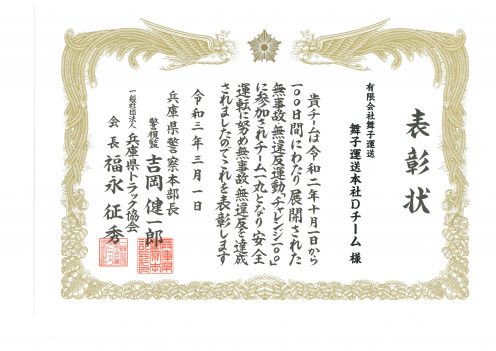 表彰状
有限会社舞子運送
舞子運送本社Dチーム 様
貴チームは令和二年十月一日から
一〇〇日間にわたり展開された
無事故・無違反運動「チャレンジ一〇〇」
に参加されチーム一丸となり安全
運転に努め無事故・無違反を達成
されましたのでこれを表彰します
令和三年三月一日
兵庫県警察本部長
警視監 吉岡健一郎
一般社団法人 兵庫県トラック協会
会長 福永征秀